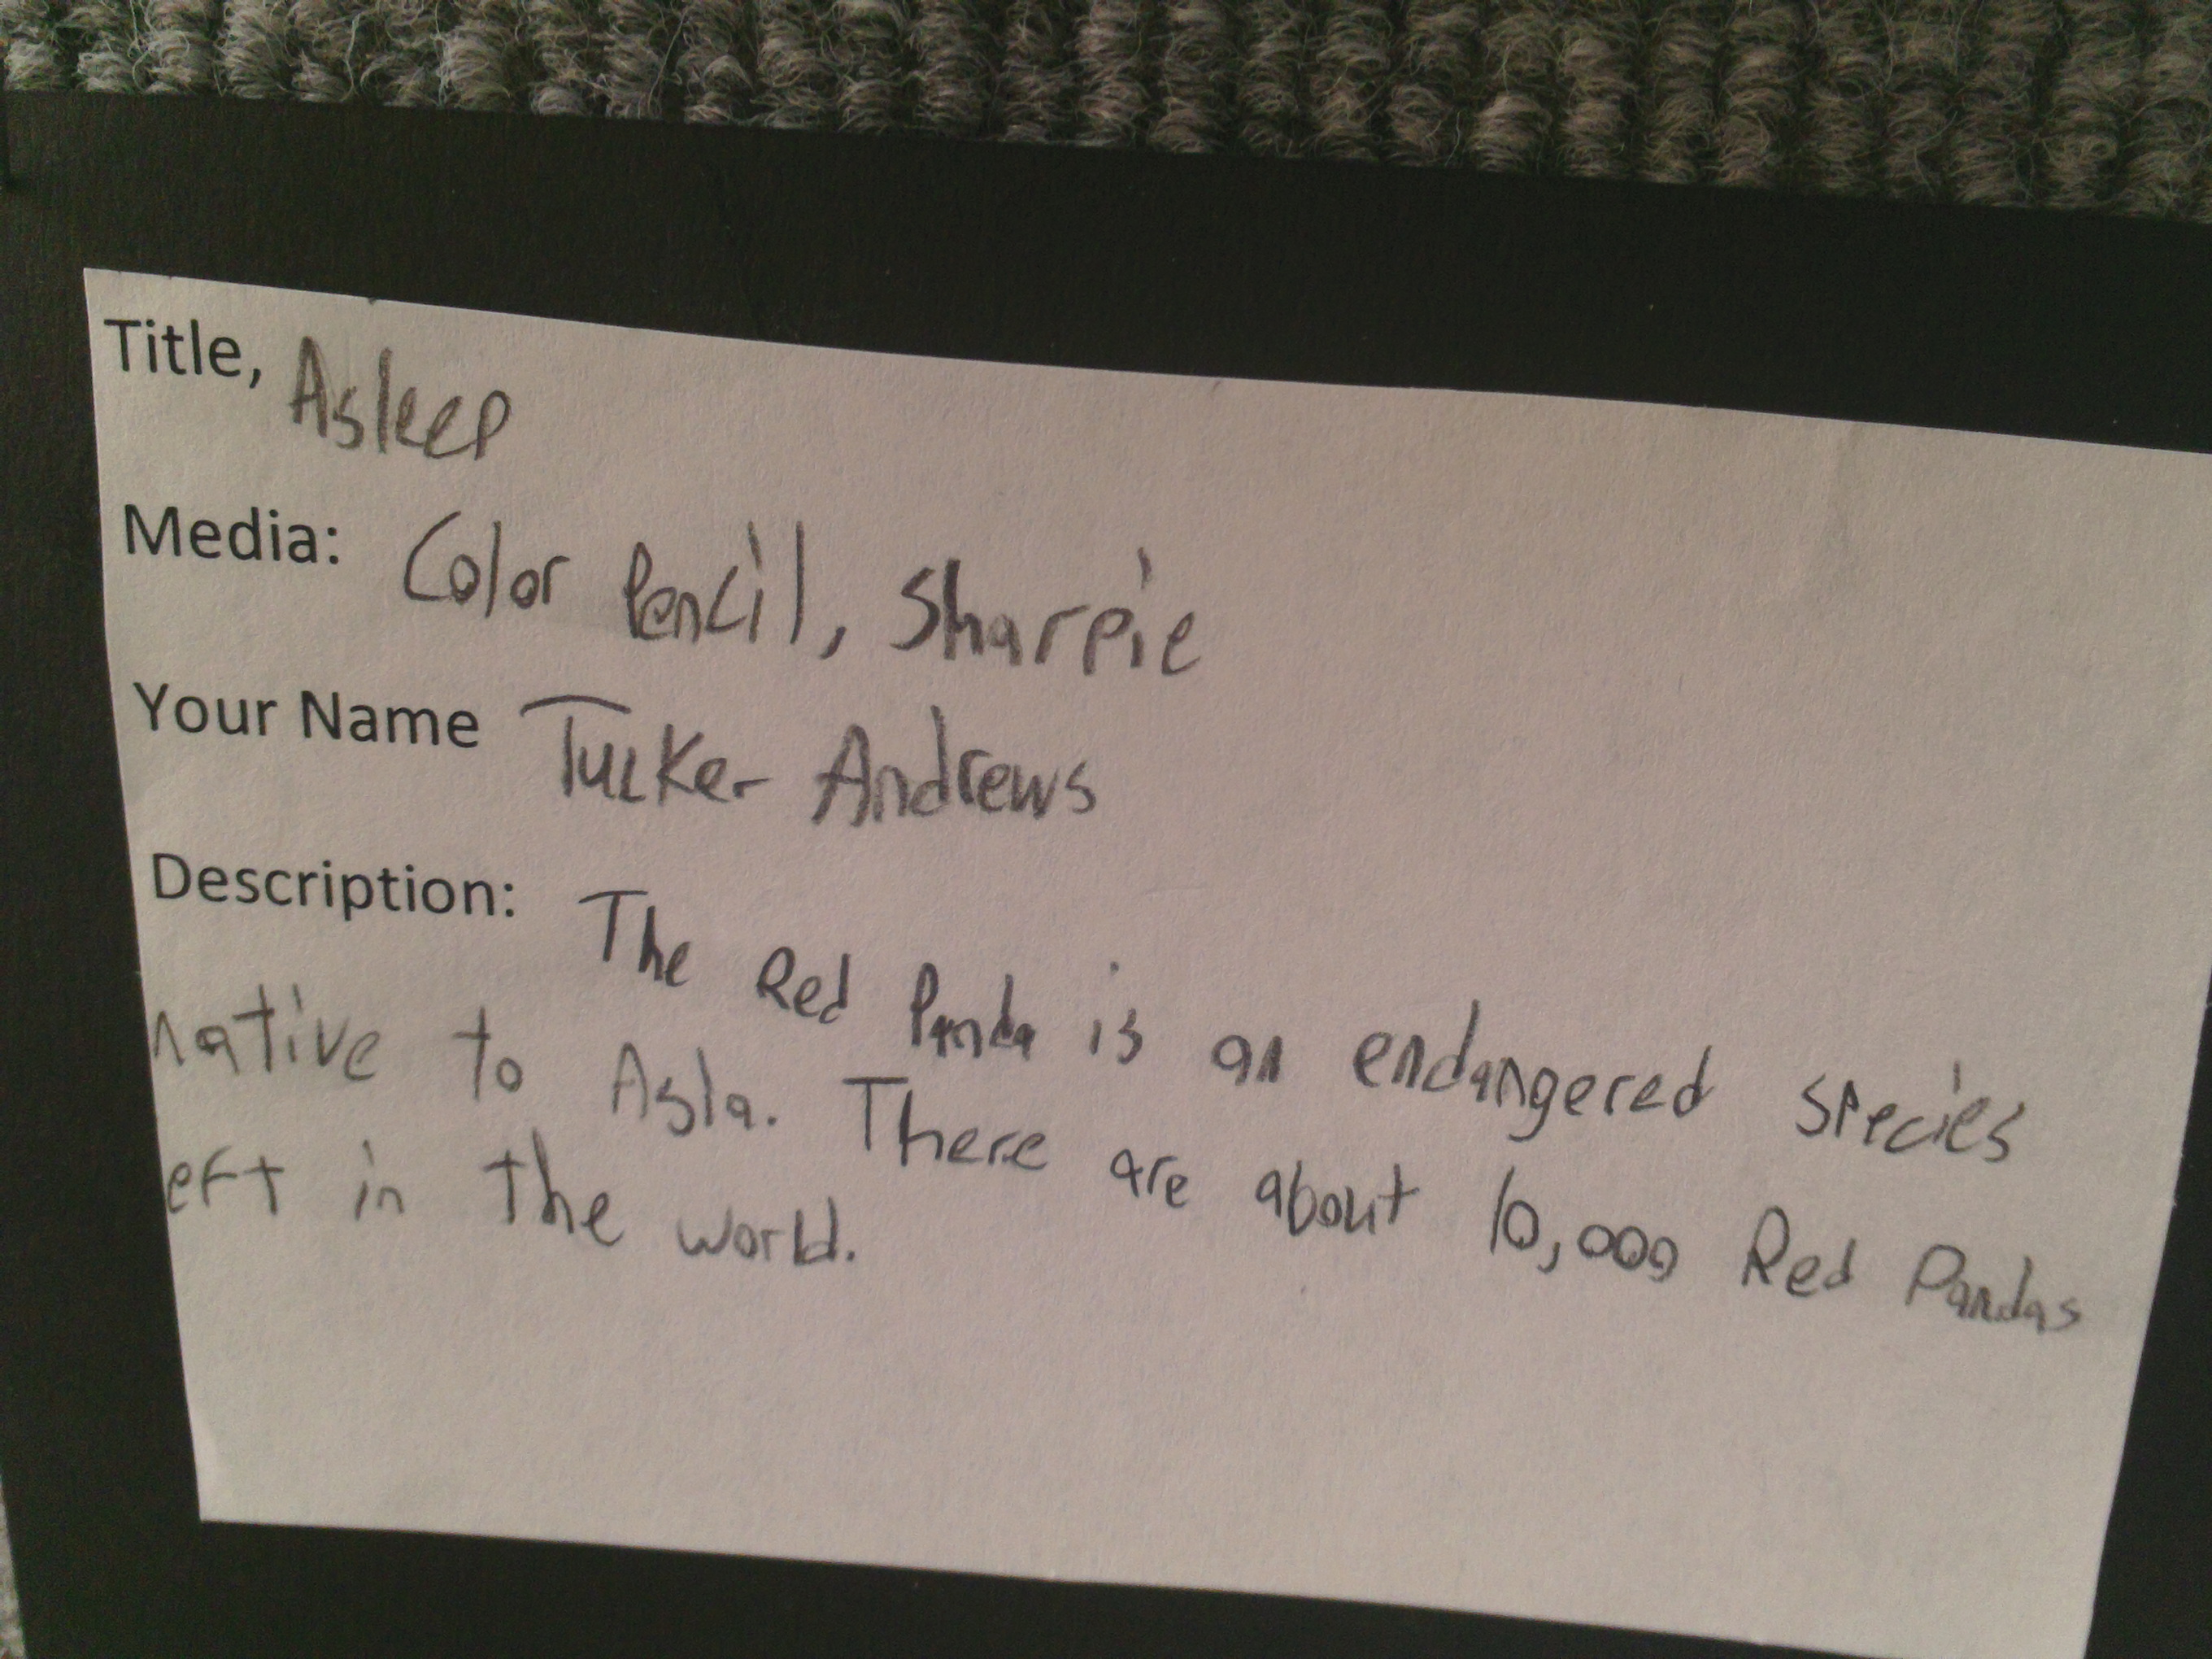 Title, Asleep
Media: Color Pencil, Sharpie
Your Name Tucker Andrews
Description: The Red Panda is an endangered species
native to Asia. There are about 10,000 Red Pandas
eft in the world.